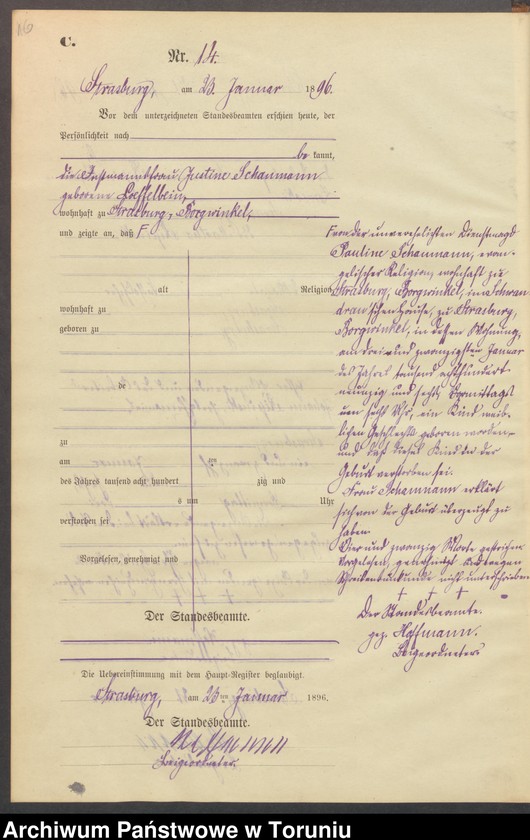 C.
Nr. 14.
Strasburg, am 23. Januar 1896.
Vor dem unterzeichneten Standesbeamten erschien heute, der
Persönlichkeit nach
be kannt,
die Instmannfrau Justine Schaumann
geborene Loeffelbein,
wohnhaft zu Strasburg, Borgwinkel,
und zeigte an, daß
alt Religion,
wohnhaft zu
geboren zu
de
zu
am ten
des Jahres tausend acht hundert zig und
s um Uhr
verstorben sei
Vorgelesen, genehmigt und
von der unverehelichten Dienstmagd
Pauline Schaumann, evan-
gelischer Religion, wohnhaft zu
Strasburg, Borgwinkel, im
Hause, zu Strasburg,
Borgwinkel, in Wohnung,
am drei und zwanzigsten Januar
des Jahres tausend achthundert
neunzig und sechs Vormittags
um sechs Uhr, ein Kind weib-
lichen Geschlechts geboren worden
und daß dieses Kind in der
Geburt verstorben sei.
Frau Schaumann erklärt
sich von der Geburt überzeugt zu
haben.
Vier und zwanzig Worte gestrichen.
Vorgelesen, genehmigt und wegen
Schreibensunkunde nicht unterschrieben
+ + +
Der Standesbeamte.
gez. Hoffmann.
Beigeordneter
Der Standesbeamte.
Die Uebereinstimmung mit dem Haupt-Register beglaubigt.
Strasburg, am 23 ten Januar 1896.
Der Standesbeamte.
Hoffmann
Beigeordneter.
Archiwum Państwowe w Toruniu